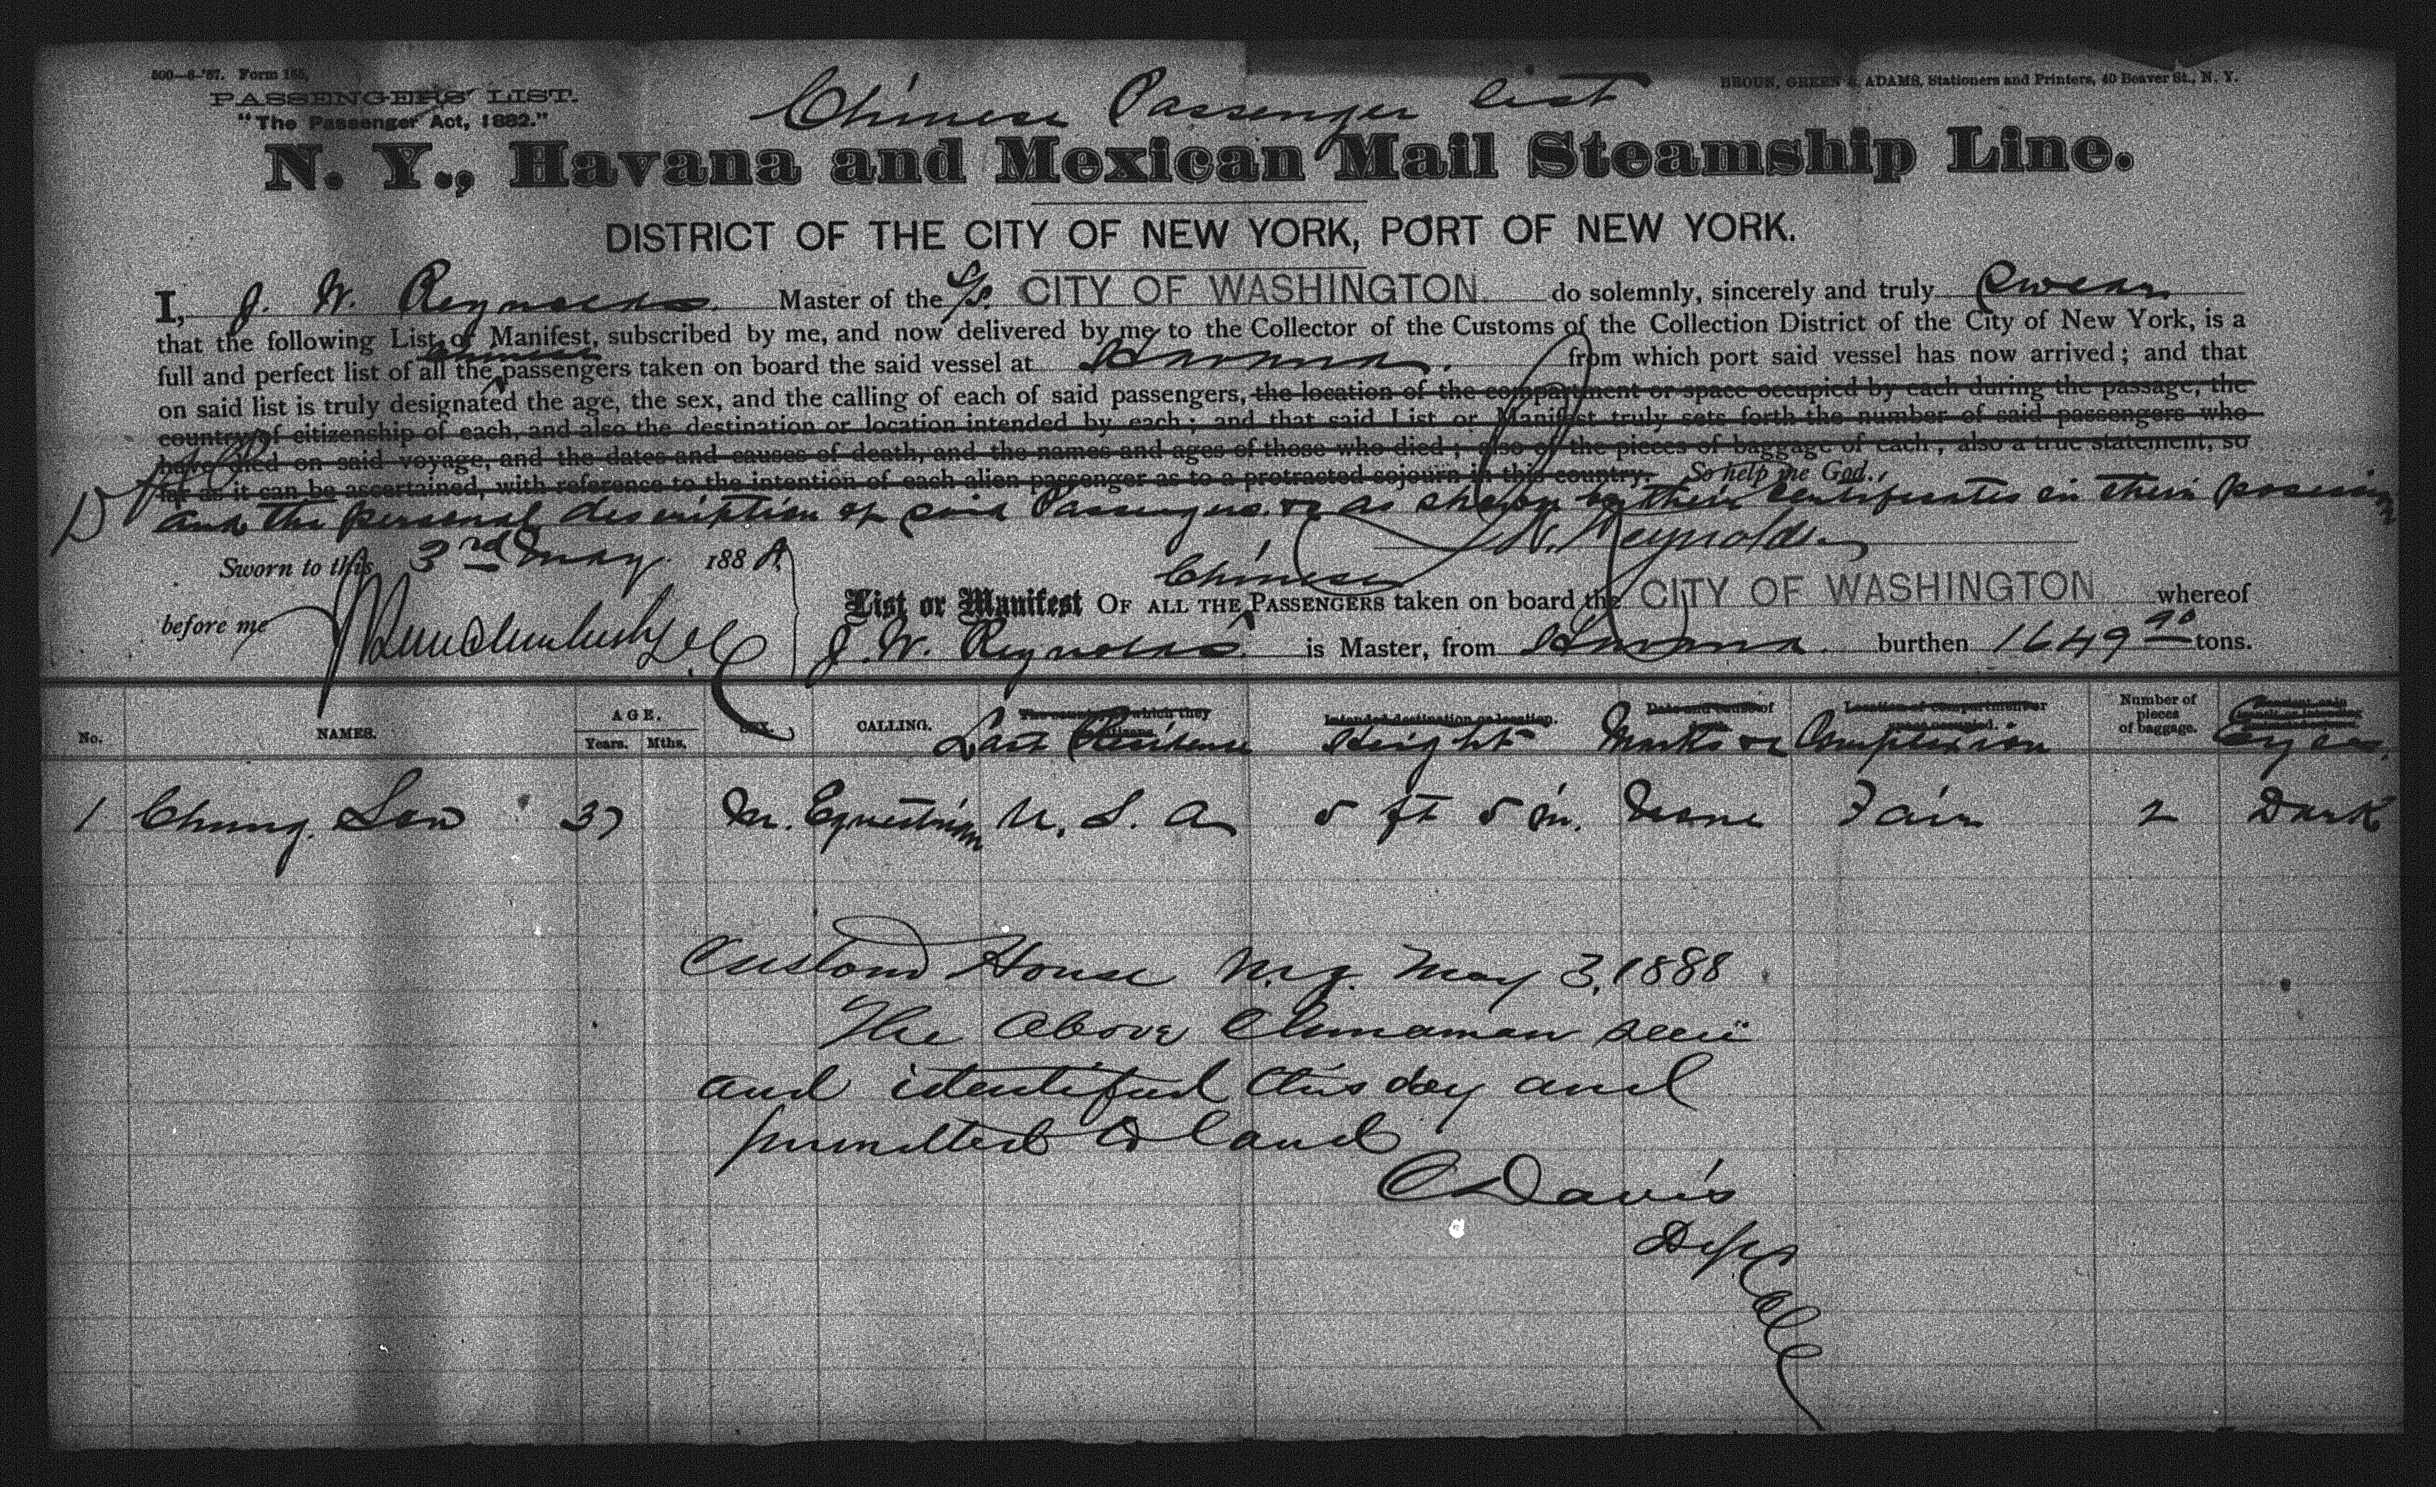 500—6-'87. Form 165.
BROUN, GREEN & ADAMS, Stationers and Printers, 40 Beaver St., N. Y.
PASSENGERS' LIST.
"The Passenger Act, 1882."
Chinese Passenger List
N. Y., Havana and Mexican Mail Steamship Line.
DISTRICT OF THE CITY OF NEW YORK, PORT OF NEW YORK.
I, J. W. Reynolds. Master of the S/S. CITY OF WASHINGTON do solemnly, sincerely and truly Swear
that the following List or Manifest, subscribed by me, and now delivered by me to the Collector of the Customs of the Collection District of the City of New York, is a
full and perfect list of all the Chinese passengers taken on board the said vessel at Havana. from which port said vessel has now arrived; and that
on said list is truly designated the age, the sex, and the calling of each of said passengers, the location of the compartment or space occupied by each during the passage, the
country of citizenship of each, and also the destination or location intended by each; and that said List or Manifest truly sets forth the number of said passengers who
have died on said voyage, and the dates and causes of death, and the names and ages of those who died; also of the pieces of baggage of each; also a true statement, so
far as it can be ascertained, with reference to the intention of each alien passenger as to a protracted sojourn in this country. So help me God.
and the personal description of said Passengers &c as shown by their Certificates in their possession
J. W. Reynolds
Sworn to this 3rd May 1888
before me
List or Manifest OF ALL THE Chinese PASSENGERS taken on board the CITY OF WASHINGTON whereof
J. W. Reynolds is Master, from Havana. burthen 1649 90 tons.
No. NAMES. AGE. Years. Mths. SEX. CALLING. Last Residence Height Marks &c Complexion Number of pieces of baggage. Eyes.
1 Chung. 37 M. Equestrian U. S. A 5 ft 5 in. None Fair 2 Dark
Custom House N.Y. May 3, 1888
The above Chinaman seen
and identified this day and
permitted to land
C Davis
Dep Coll